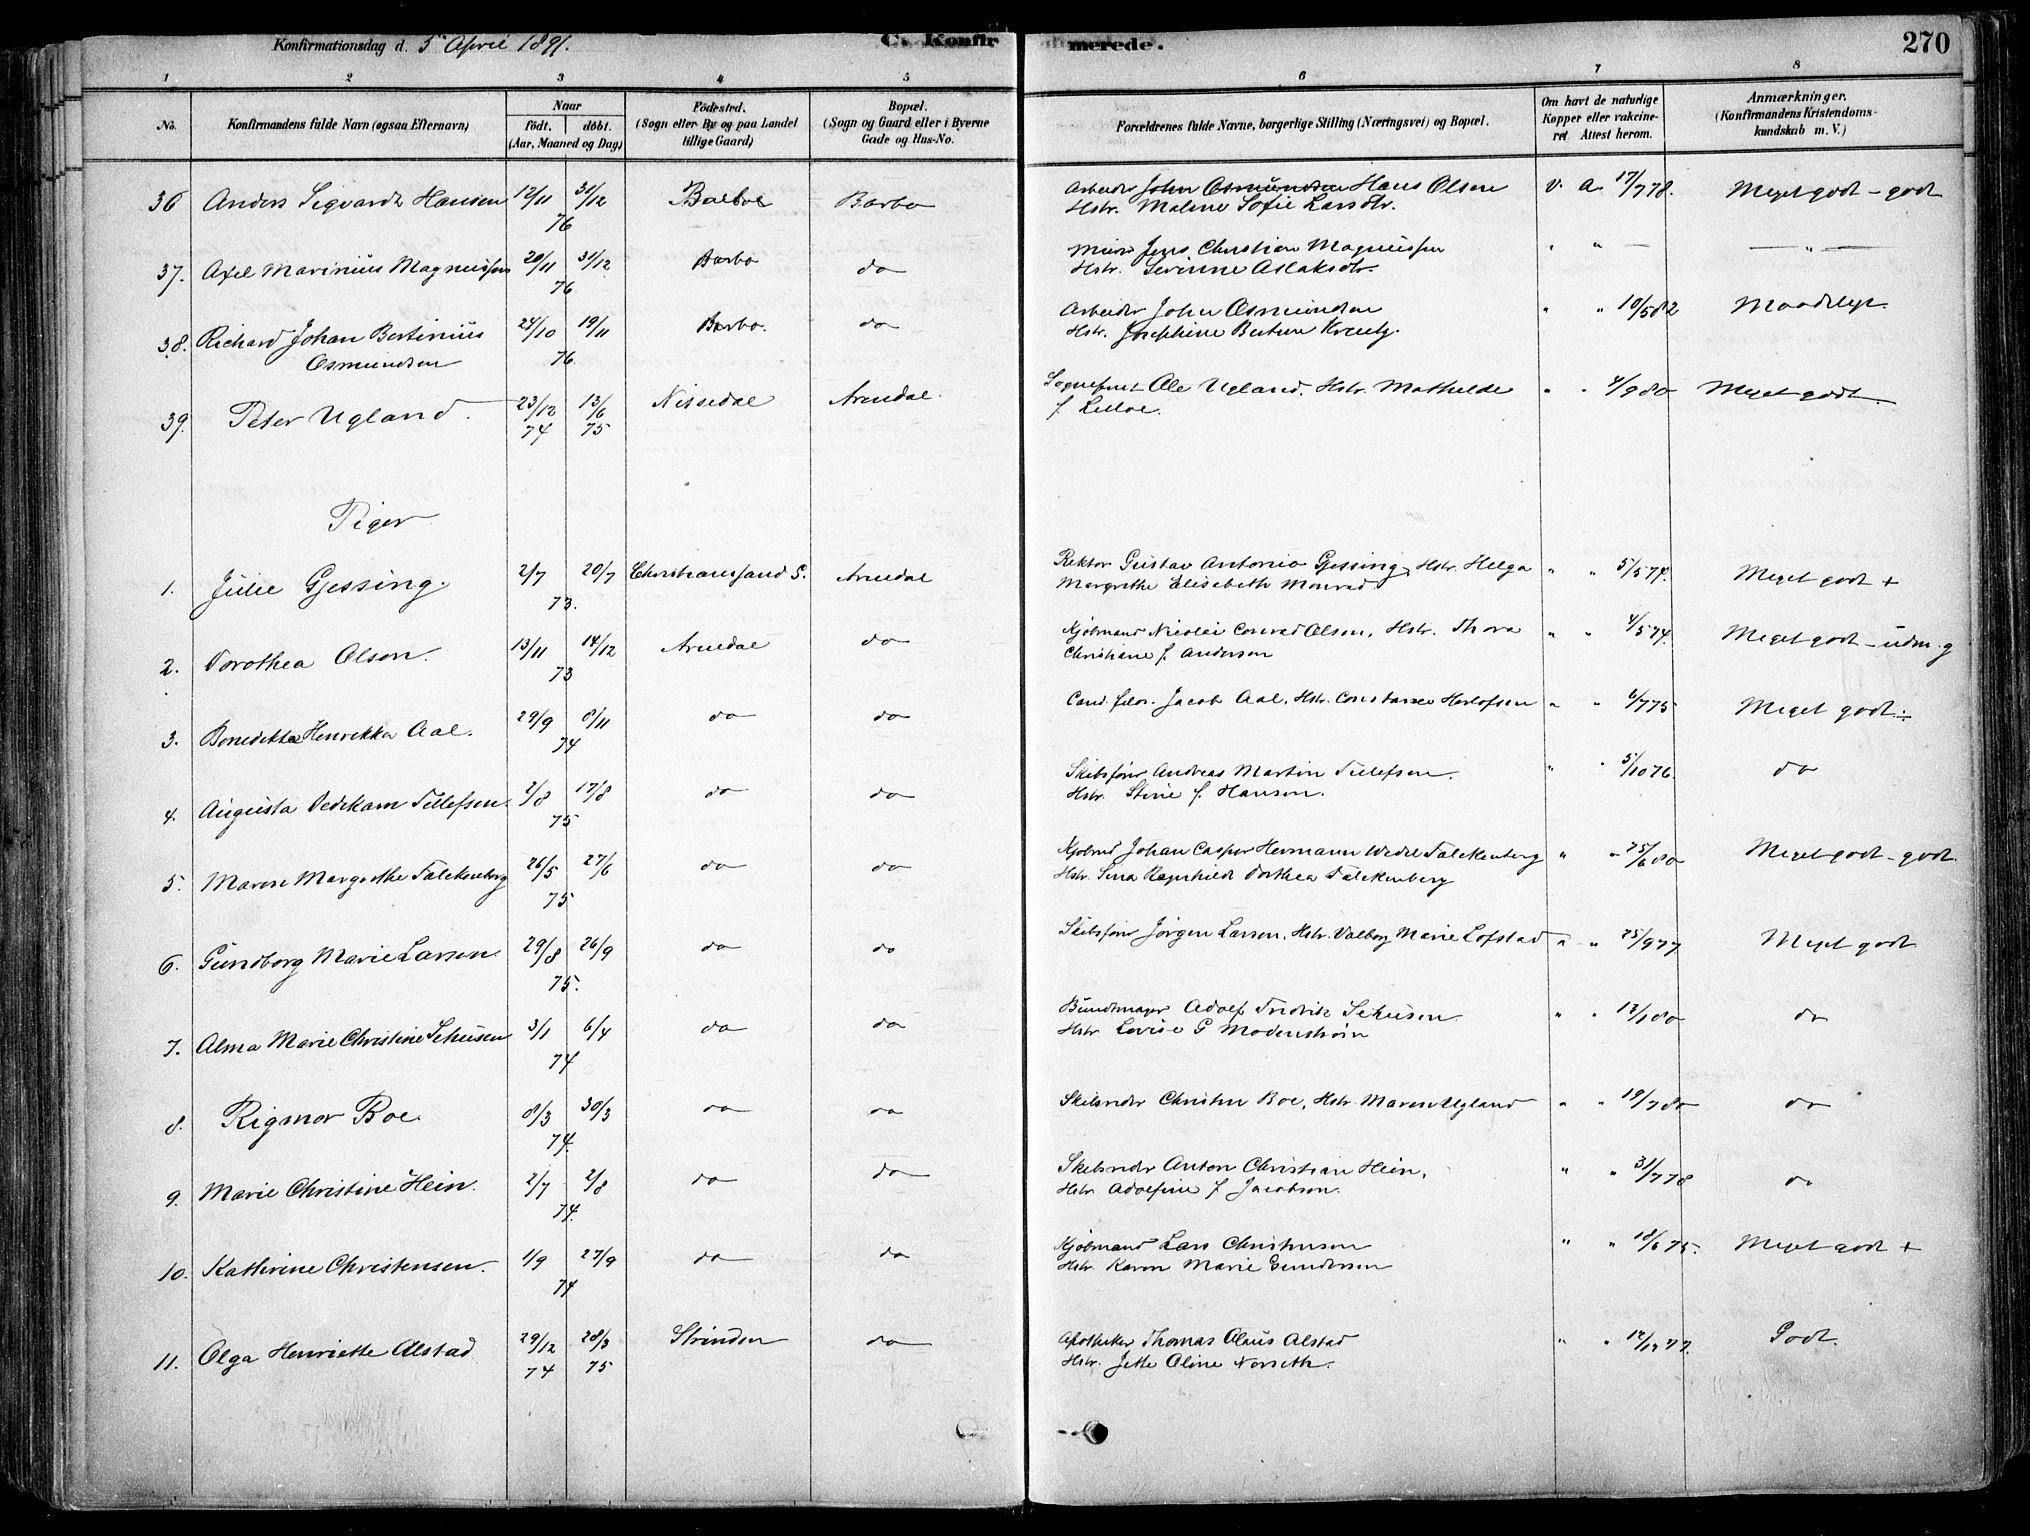 Konfirmationsdag d. 5 April 1891. C. Konfirmerede. 270
1 2 3 4 5 6 7 8
No. Konfirmandens fulde Navn (ogsaa Efternavn) Naar födt. döbt. (Aar, Maaned og Dag) Födested. (Sogn eller By og paa Landet tillige Gaard) Bopæl. (Sogn og Gaard eller i Byerne Gade og Hus-No. Forældrenes fulde Navne, borgerlige Stilling (Næringsvei) og Bopæl. Om havt de naturlige Kopper eller vakcineret Attest herom. Anmærkninger. (Konfirmandens Kristendomskundskab m. V.)
36 Anders Sigvardt Hansen 12/11 31/12 76 Barbo Barbo Arbeider John Osmundsen Hans Olsen v. a. 17/7 78. Meget godt - godt
Hstr. Malene Sofie Larsdtr.
37. Axel Marinius Magnussen 20/11 31/12 76 Barbo do Murer Jens Christian Magnussen " " — — " —
Hstr. Severine Aslaksdtr.
38. Richard Johan Bertinius 24/10 19/11 76 Barbo. do Arbeider John Osmundsen " " 10/5 82 Maadelyt.
Osmundsen Hstr. Josephine Bertine
39. Peter Ugland. 23/12 74 13/6 75 Nissedal Arendal. Sognefut Ole Ugland, Hstr. Mathilde " " 4/9 80 Meget godt.
f.
Piger
1. Julie Gjessing. 2/7 20/7 73. Christianssand S. Arendal Rektor Gustav Antonio Gjessing, Hstr. Helga " " 5/5 74. Meget godt +
Margrethe Elisabeth Monrad.
2. Dorothea Olsen. 13/11 14/12 73 Arendal do Kjøbmand Nicolai Conrad Olsen, Hstr. Thora " " 4/5 74. Meget godt - udm. g
Christiane f. Anderson
3. Benedikta Henrikka Aal. 29/9 8/11 74 do do Cand. filos. Jacob Aal, Hstr. Constance Herlofsen " " 6/7 75 Meget godt ÷
4. Augusta Dedekam Tellefsen. 2/8 17/8 75 do do Skibsfører Andreas Martin Tellefsen. " " 5/10 76. do
Hstr. Stine f. Hansen.
5. Maren Margrethe Falckenberg 26/5 27/6 75 do do Kjøbmd Johan Casper Hermann Wedel Falckenberg " " 25/6 80 Meget godt - godt.
Hstr. Ragnhild Dorthea Falckenberg
6. Gundborg Marie Larsen. 29/8 26/9 75. do do Skibsfører Jörgen Larsen, Hstr. Valborg Marie Lofstad " " 25/9 77 Meget godt
7. Alma Marie Christine Sehusen 3/1 6/4 74 do do Bundtmager Adolf Fredrik Sehusen. " " 13/1 80 do
Hstr Lovise G
8. Rigmor Boe. 8/3 30/3 74. do do Skibsreder Christen Boe, Hstr. Maren Ugland " " 19/7 80 do
9. Marie Christine Hein. 2/7 2/8 74. do do Skibsreder Anton Christian Hein, " " 31/7 78 do
Hstr Adolfine f. Jacobsen.
10. Kathrine Christensen. 1/9 27/9 74 do do Kjøbmand Lars Christensen " " 18/6 75. Meget godt +
Hstr. Karen Marie Gundersen
11. Olga Henriette Alstad 29/12 74 28/3 75 Strinden do Apotheker Thomas Claus Alstad " " 12/12 77. Godt.
Hstr. Jette Oline Norseth.